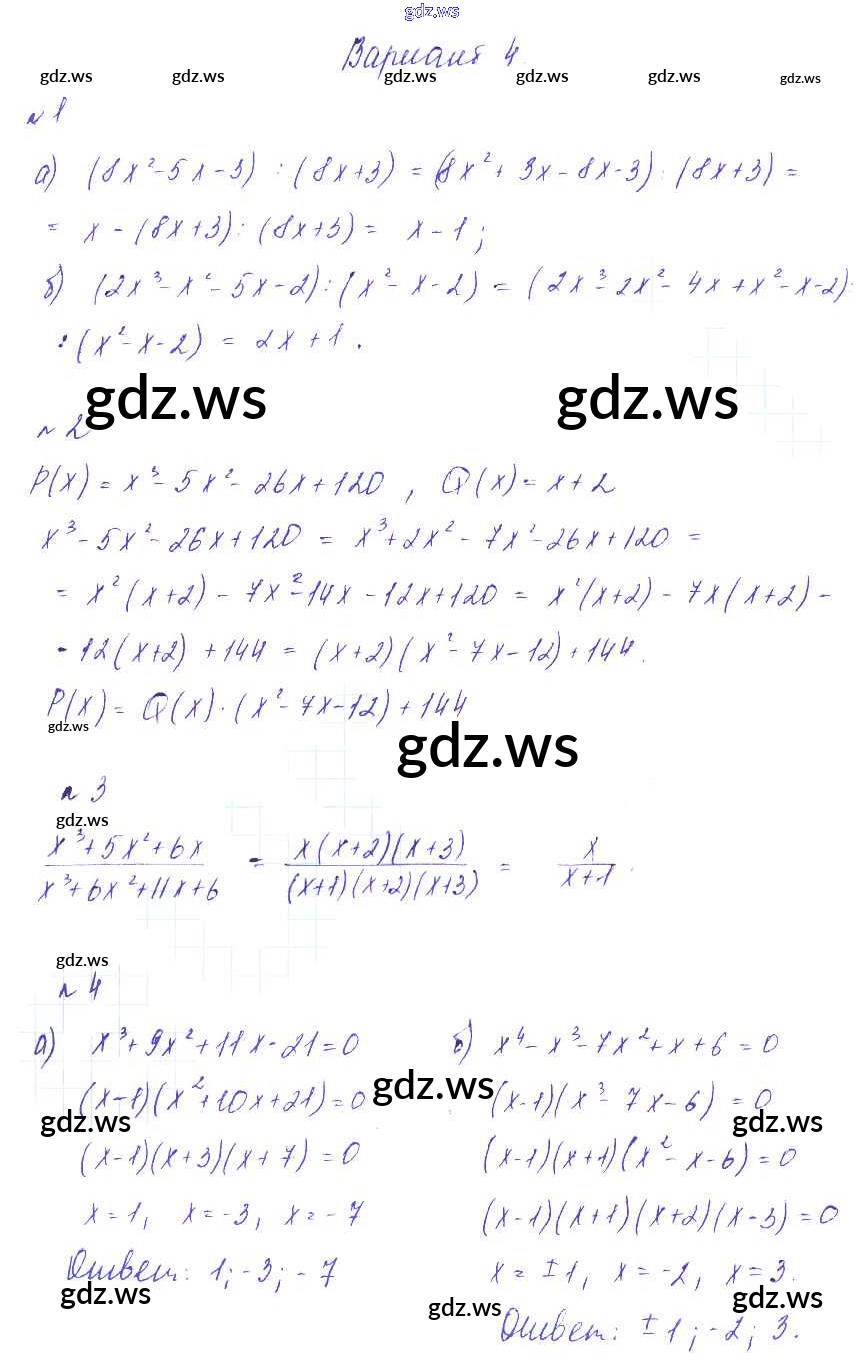 gdz.ws
Вариант 4.
gdz.ws gdz.ws gdz.ws gdz.ws gdz.ws gdz.ws
№1
а) (8x²-5x-3) : (8x+3) = (8x²+3x-8x-3) : (8x+3) =
= x - (8x+3) : (8x+3) = x-1;
б) (2x³-x²-5x-2) : (x²-x-2) = (2x³-2x²-4x+x²-x-2)
: (x²-x-2) = 2x+1.
gdz.ws gdz.ws
№2
P(x) = x³-5x²-26x+120, Q(x) = x+2
x³-5x²-26x+120 = x³+2x²-7x²-26x+120 =
= x²(x+2)-7x²-14x-12x+120 = x²(x+2)-7x(x+2)-
-12(x+2)+144 = (x+2)(x²-7x-12)+144.
P(x) = Q(x)·(x²-7x-12)+144
gdz.ws
gdz.ws
№3
gdz.ws
x³+5x²+6x / x³+6x²+11x+6 = x(x+2)(x+3) / (x+1)(x+2)(x+3) = x / x+1.
gdz.ws
№4
а) x³+9x²+11x-21=0
(x-1)(x²+10x+21)=0
gdz.ws
gdz.ws
(x-1)(x+3)(x+7)=0
x=1, x=-3, x=-7
Ответ: 1; -3; -7
gdz.ws
б) x⁴-x³-7x²+x+6=0
(x-1)(x³-7x-6)=0
gdz.ws
(x-1)(x+1)(x²-x-6)=0
(x-1)(x+1)(x+2)(x-3)=0
x=±1, x=-2, x=3.
gdz.ws gdz.ws
Ответ: ±1; -2; 3.